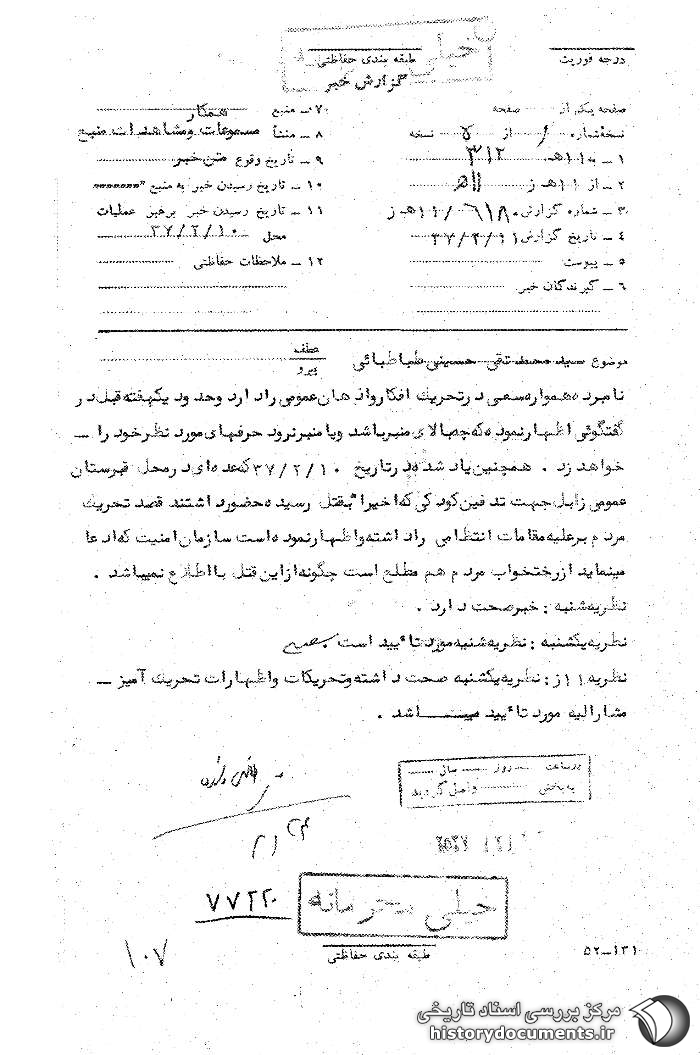 خیلی
طبقه بندی حفاظتی
درجه فوریت
گزارش خبر
صفحه یکم از صفحه
نسخه شماره ۱ از ۵ نسخه
۱ ـ به ۱۱هـ ۳۱۲
۲ ـ از ۱۱هـ ز ۱۱هـ
۳ ـ شماره گزارش ۶۱۸۰/۱۱هـ ز
۴ ـ تاریخ گزارش ۳۷/۲/۱۱
۵ ـ پیوست
۶ ـ گیرندگان خبر
۷ ـ منبع همکار
۸ ـ منشأ مسموعات ومشاهدات منبع
۹ ـ تاریخ وقوع متن خبر
۱۰ ـ تاریخ رسیدن خبر به منبع
۱۱ ـ تاریخ رسیدن خبر برهبر عملیات
محل ۳۷/۲/۱۰
۱۲ ـ ملاحظات حفاظتی
موضوع سید محمد تقی حسینی طباطبائی
عطف
پیرو
نامبرده همواره سعی درتحریك افكارواذهان عمومی را دارد وحدود یكهفته قبل در
گفتگوئی اظهارنموده كه چه بالای منبرباشد ویا منبرنرود حرفهای مورد نظرخود را ـ
خواهد زد . همچنین یاد شده در تاریخ ۳۷/۲/۱۰ كه عده ای در محل قبرستان
عمومی زابل جهت تدفین كودكی كه اخیرا بقتل رسیده حضور داشتند قصد تحریك
مردم برعلیه مقامات انتظامی را داشته واظهارنموده است سازمان امنیت كه ادعا
مینماید ازرختخواب مردم هم مطلع است چگونه ازاین قتل با اطلاع نمیباشد .
نظریه شنبه : خبرصحت دارد .
نظریه یكشنبه : نظریه شنبه مورد تائید است
نظریه ۱۱ز: نظریه یكشنبه صحت داشته وتحریكات واظهارات تحریك آمیز ـ
مشارالیه مورد تائید میباشد .
درساعت روز سال
به بخش داخل گردید
۲۱ ۲۴
۷۷۲۲۰
خیلی محرمانه
طبقه بندی حفاظتی
۱۰۷
۵۲-۱۳۱
مرکز بررسی اسناد تاریخی
historydocuments.ir